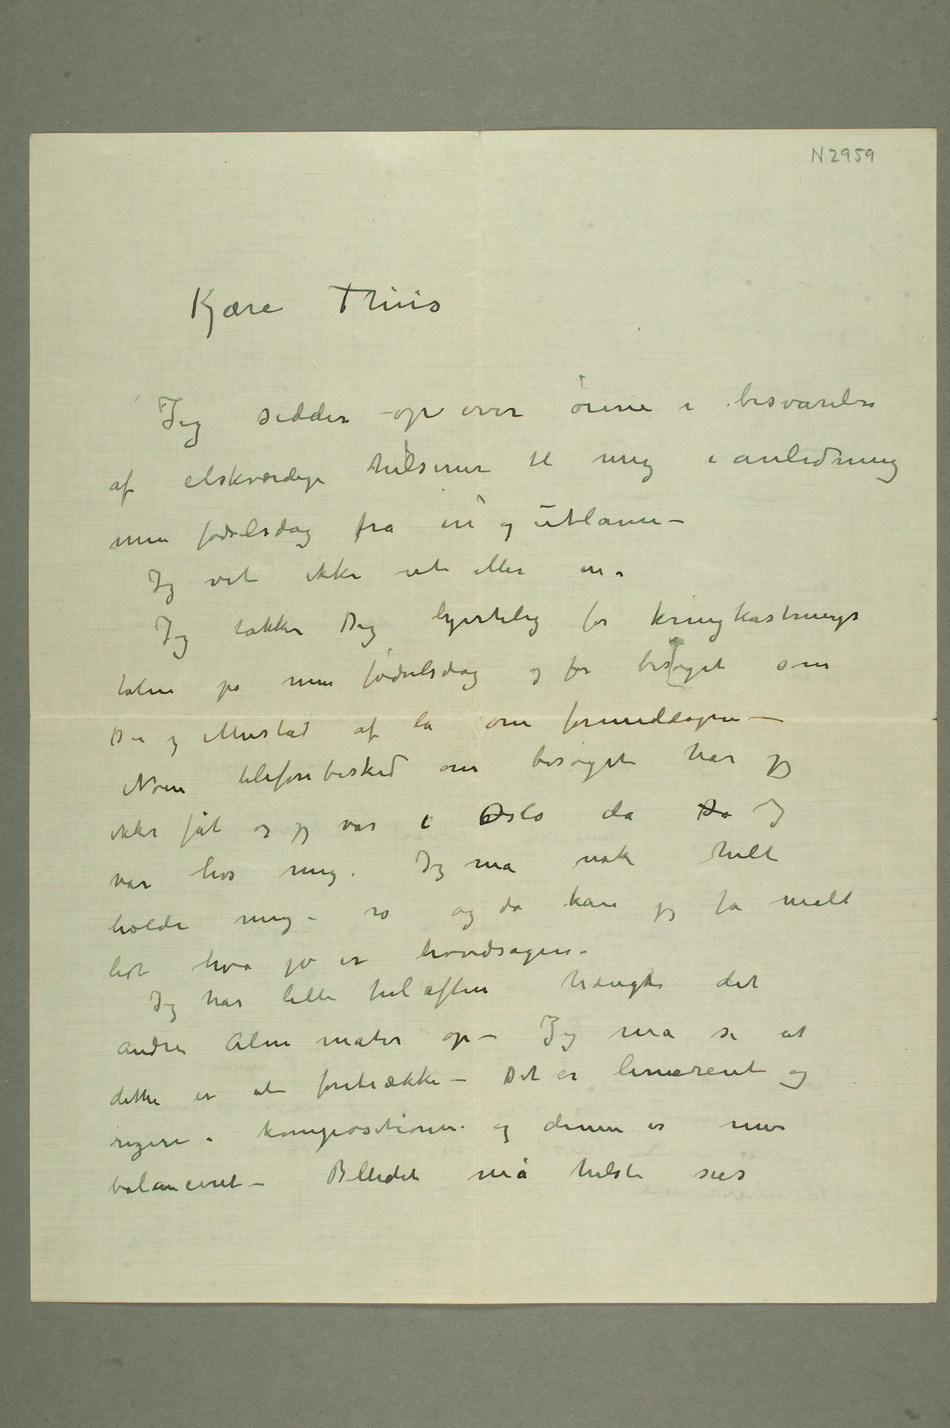 N 2959
Kjære Thiis
Jeg sidder op over ørene i besvarelse
af elskværdige hilsener til mig i anledning
min fødselsdag fra in og utlann –
Jg vet ikke ut eller in.
Jeg takker Dig hjertelig for kringkastnings
talen på min fødselsdag og for besøget som
Du og Mustad af la om formiddagen –
Noen telefonbesked om besøget har jg
ikke fåt og jg var i Oslo da Do I
var hos mig. Jeg må nok helt
holde mig i ro og da kan jg få malt
lidt hva jo er hovedsagen –
Jg har lille hel aften hængt det
andre Alma mater op – Jeg må si at
dette er at foretrække – Det er linierent og
rigere i kompositionen og denne er mer
balanceret – Billedet må helst sees